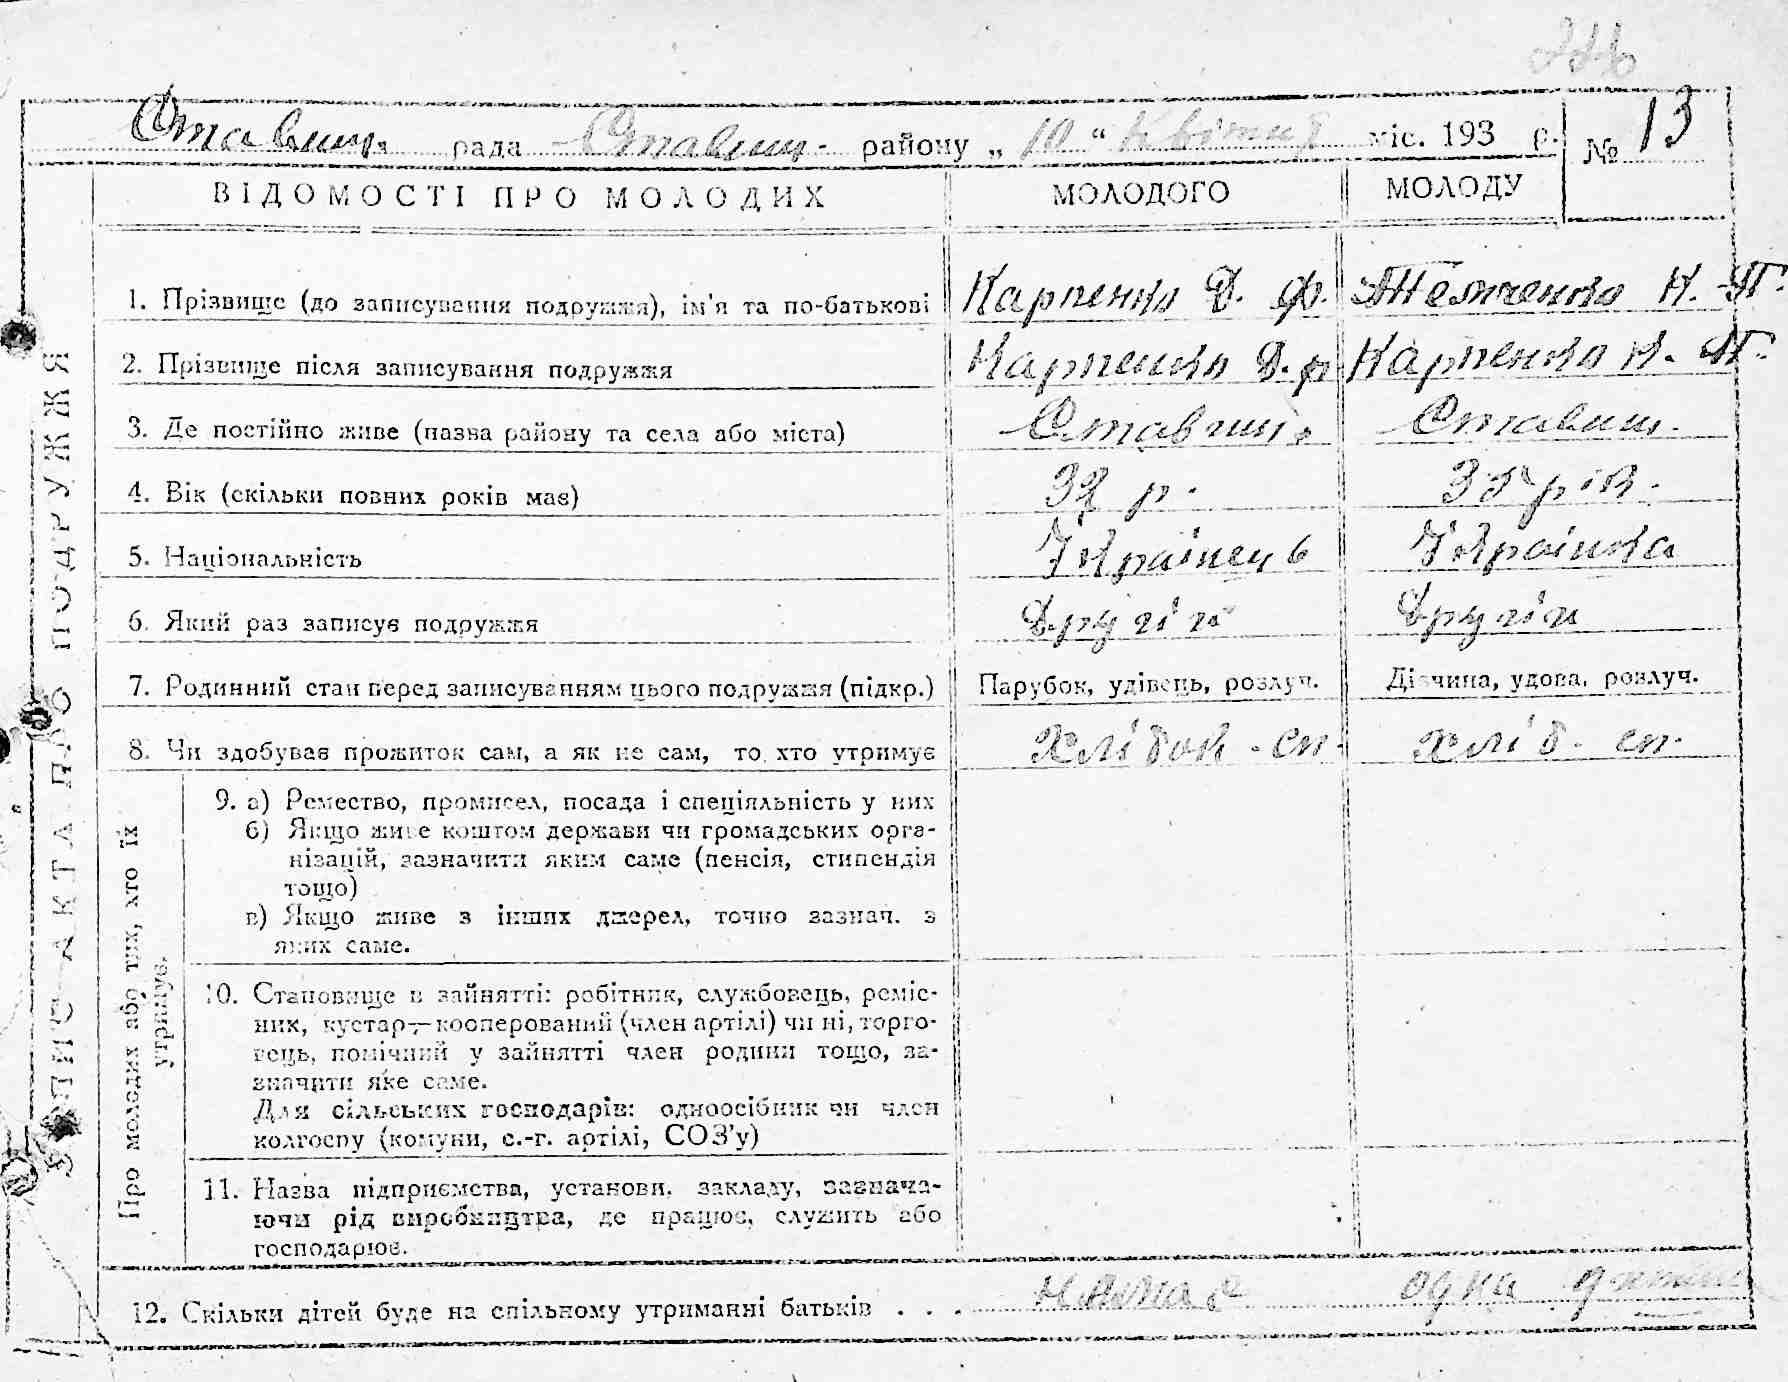 Ставищ. рада Ставищ. району „10“ Квітня міс. 193 р. № 13
ВІДОМОСТІ ПРО МОЛОДИХ МОЛОДОГО МОЛОДУ
ЗАПИС АКТА ПРО ПОДРУЖЖЯ
1. Прізвище (до записування подружжя), ім'я та по-батькові Карпенко Д. Ф. К. Т.
2. Прізвище після записування подружжя Карпенко Д. Карпенко К. Т.
3. Де постійно живе (назва району та села або міста) Ставищ. Ставищ.
4. Вік (скільки повних років має) 32 р. рів.
5. Національність Українець Українка
6. Який раз записує подружжя Другій Другій
7. Родинний стан перед записуванням цього подружжя (підкр.) Парубок, удівець, розлуч. Дівчина, удова, розлуч.
8. Чи здобуває прожиток сам, а як не сам, то хто утримує Хлібоп. сп. хліб. сп.
Про молодих або тих, хто їх
утримує.
9. а) Ремество, промисел, посада і спеціяльність у них
б) Якщо живе коштом держави чи громадських орга-
нізацій, зазначити яким саме (пенсія, стипендія
тощо)
в) Якщо живе з інших джерел, точно зазнач. з
яких саме.
10. Становище в зайнятті: робітник, службовець, реміс-
ник, кустар—кооперований (член артілі) чи ні, торго-
вець, помічний у зайнятті член родини тощо, за-
значити яке саме.
Для сільських господарів: одноосібник чи член
колгоспу (комуни, с.-г. артілі, СОЗ'у)
11. Назва підприємства, установи, закладу, зазнача-
ючи рід виробництва, де працює, служить або
господарює.
12. Скільки дітей буде на спільному утриманні батьків . . . немає одна дитина